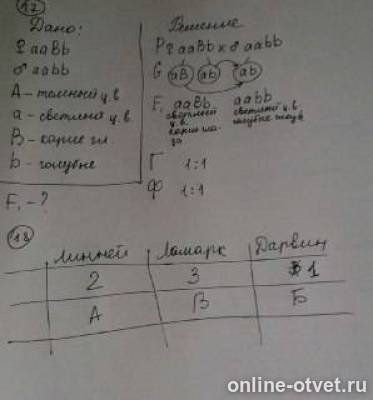 17
Дано:
♀ aaBb
♂ aabb
А - темный ц.в
а - светлый ц.в
В - карие гл.
b - голубые
F₁ - ?
Решение
P ♀ aaBb x ♂ aabb
G aB ab ab
F₁ aaBb aabb
светлый светлый ц.в
ц.в. голубые
карие
Г 1:1
Ф 1:1
18
Линней Ламарк Дарвин
2 3 1
А В Б
online-otvet.ru